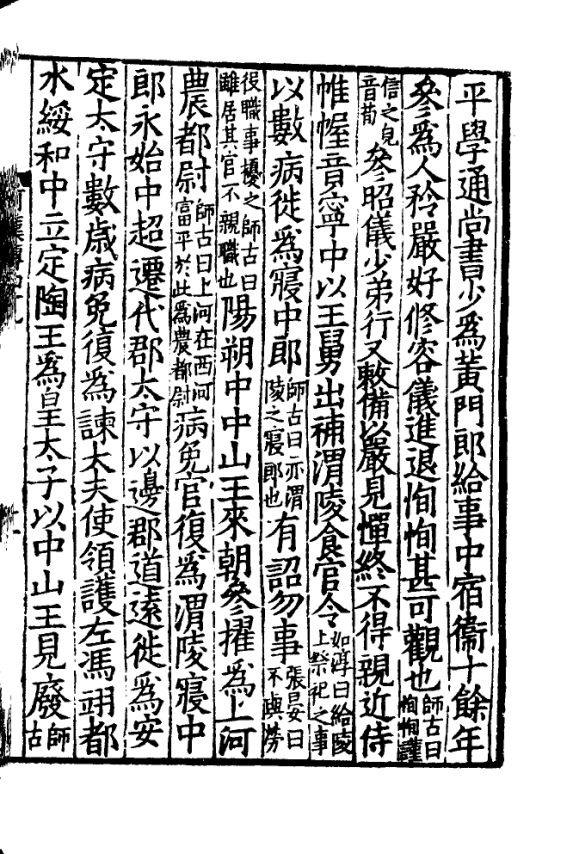 平學通尚書少為黃門郎給事中宿衞十餘年
參為人矜嚴好修容儀進退恂恂甚可觀也師古曰恂恂謹
信之皃音荀參昭儀少弟行又敕備以嚴見憚終不得親近侍
帷幄竟寧中以王舅出補渭陵食官令如淳曰給陵上祭祀之事
以數病徙為寢中郎師古曰亦渭陵之寢郎也有詔勿事張晏曰不與勞
役職事擾之師古曰雖居其官不親職也陽朔中中山王來朝參擢為上河
農都尉師古曰上河在西河富平於此為農都尉病免官復為渭陵寢中
郎永始中超遷代郡太守以邊郡道遠徙為安
定太守數歲病免復為諫大夫使領護左馮翊都
水綏和中立定陶王為皇太子以中山王見廢師古